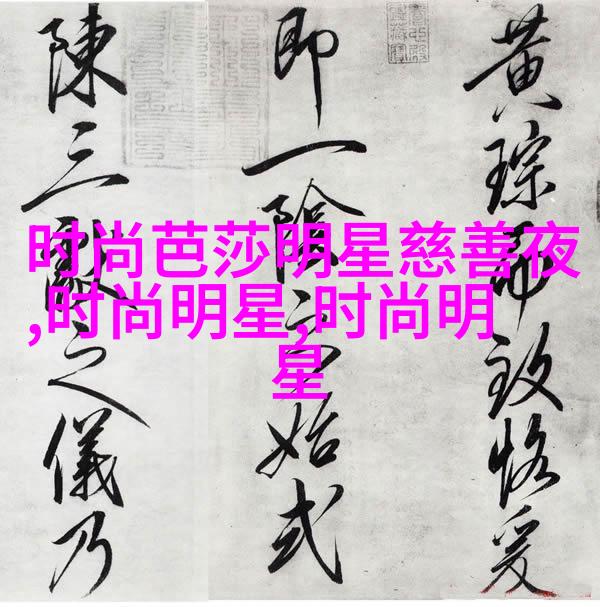 时尚芭莎明星慈善夜
,时尚明星,时尚明
星
黄琮致恪爰
即一陰之始式
陳三獻之儀乃